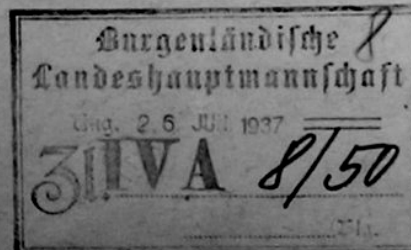 Burgenländische 8
Landeshauptmannschaft
Eing. 26 JUN 1937
Zl. IVA 8/50
Blg.